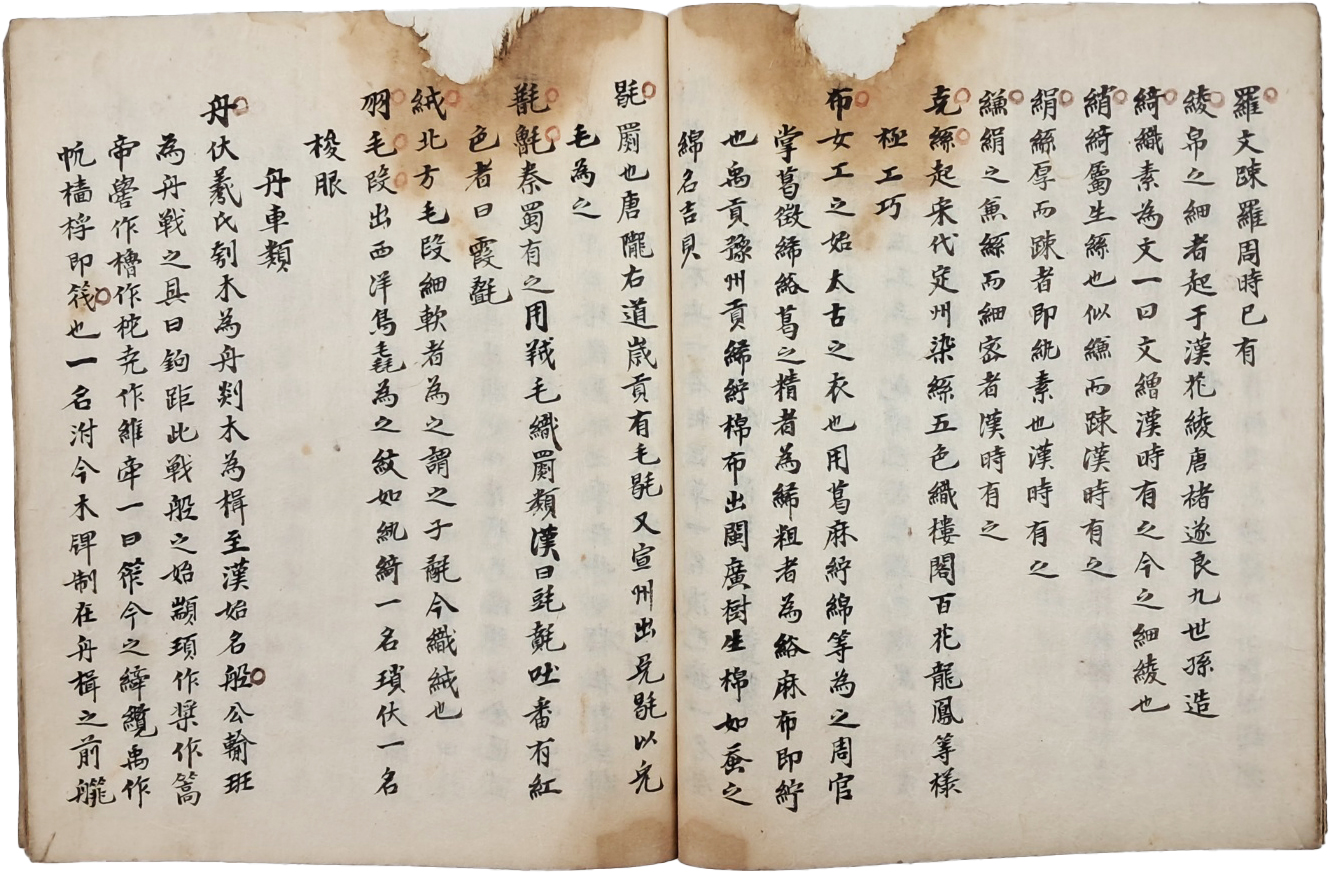 羅文踈羅周時已有
綾帛之細者起于漢花綾唐禇遂良九世孫造
綺織素為文一曰文繒漢時有之今之細綾也
綃綺屬生絲也似縑而踈漢時有之
絹絲厚而踈者即紈素也漢時有之
縑絹之魚絲而細密者漢時有之
克絲起宋代定州染絲五色織樓閣百花龍鳳等樣
極工巧
布女工之始太古之衣也用葛麻紵綿等為之周官
掌葛徵絺綌葛之精者為絺粗者為綌麻布即紵
也禹貢豫州貢絺紵棉布出閩廣樹生棉如蚕之
綿名吉貝
毼罽也唐隴右道歲貢有毛毼又宣州出兎毼以兎
毛為之
氍秦蜀有之用羢毛織罽類漢曰㲣毲吐番有紅
色者曰霞氍
絨北方毛段細軟者為之謂之子氍今織絨也
羽毛段出西洋鳥毳為之紋如紈綺一名瑣伏一名
梭眼
舟車類
舟伏羲氏刳木為舟剡木為楫至漢始名船公輸班
為舟戰之具曰鉤距此戰船之始顓頊作槳作篙
帝嚳作櫓作柁堯作維牽一曰筰今之縴纜禹作
帆檣桴即筏也一名泭今木牌制在舟楫之前